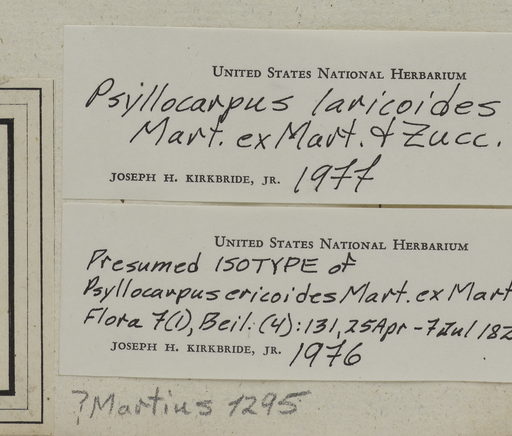 United States National Herbarium
Psyllocarpus laricoides
Mart. ex Mart. & Zucc.
Joseph H. Kirkbride, Jr. 1977
United States National Herbarium
Presumed ISOTYPE of
Psyllocarpus ericoides Mart. ex Mart
Flora 7(1), Beil. (4):131, 25Apr-7Jul 182
Joseph H. Kirkbride, Jr. 1976
?Martius 1295